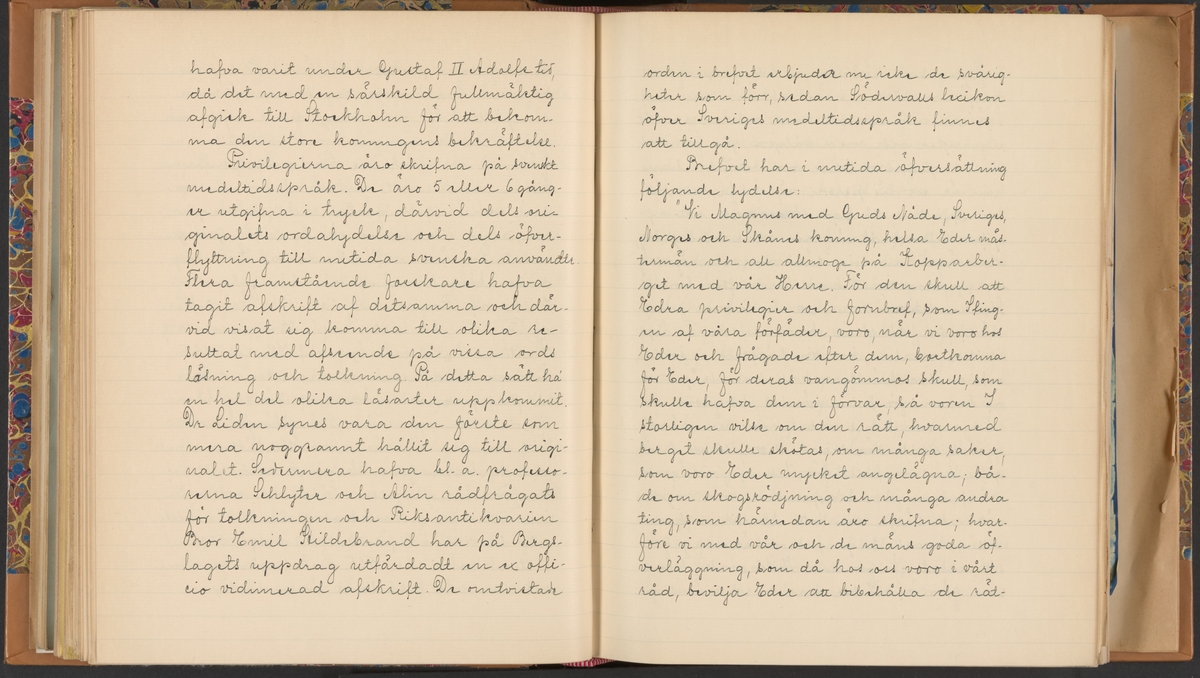 hafva varit under Gustaf II Adolfs tid,
då det med en särskild fullmäktig
afgick till Stockholm för att bekom-
ma den store konungens bekräftelse.
Privilegierna äro skrifna på svenskt
medeltidsspråk. De äro 5 eller 6 gång-
er utgifna i tryck, därvid dels ori-
ginalets ordalydelse och dels öfver-
flyttning till nutida svenska användts.
Flera framstående forskare hafva
tagit afskrift af detsamma och där-
vid visat sig komma till olika re-
sultat med afseende på vissa ords
läsning och tolkning. På detta sätt ha
en hel del olika läsarter uppkommit.
Dr Lidén synes vara den förste som
mera noggrannt hållit sig till origi-
nalet. Sedermera hafva bl. a. professo-
rerna Schlyter och Alin rådfrågats
för tolkningen och Riksantikvarien
Bror Emil Hildebrand har på Bergs-
lagets uppdrag utfärdadt en ex offi-
cio vidimerad afskrift. De omtvistade
orden i brefvet erbjuder nu icke de svårig-
heter som förr, sedan Södervalls lexikon
öfver Sveriges medeltidsspråk finnes
att tillgå.
Brefvet har i nutida öfversättning
följande lydelse:
"Vi Magnus med Guds Nåde, Sveriges,
Norges och Skånes konung, helsa Eder mäs-
termän och all allmoge på Kopparber-
get med vår Herre. För den skull att
Edra privilegier och fornbref, som I fing-
en af våra förfäder, voro, när vi voro hos
Eder och frågade efter dem, bortkomna
för Eder, för deras vangömmos skull, som
skulle hafva dem i förvar, så voren I
storligen vilse om den rätt, hvarmed
berget skulle skötas, om många saker,
som voro Eder mycket angelägna; bå-
de om skogsrödjning och många andra
ting, som härnedan äro skrifna; hvar-
före vi med vår och de mäns goda öf-
verläggning, som då hos oss voro i vårt
råd, bevilja Eder att bibehålla de rät-